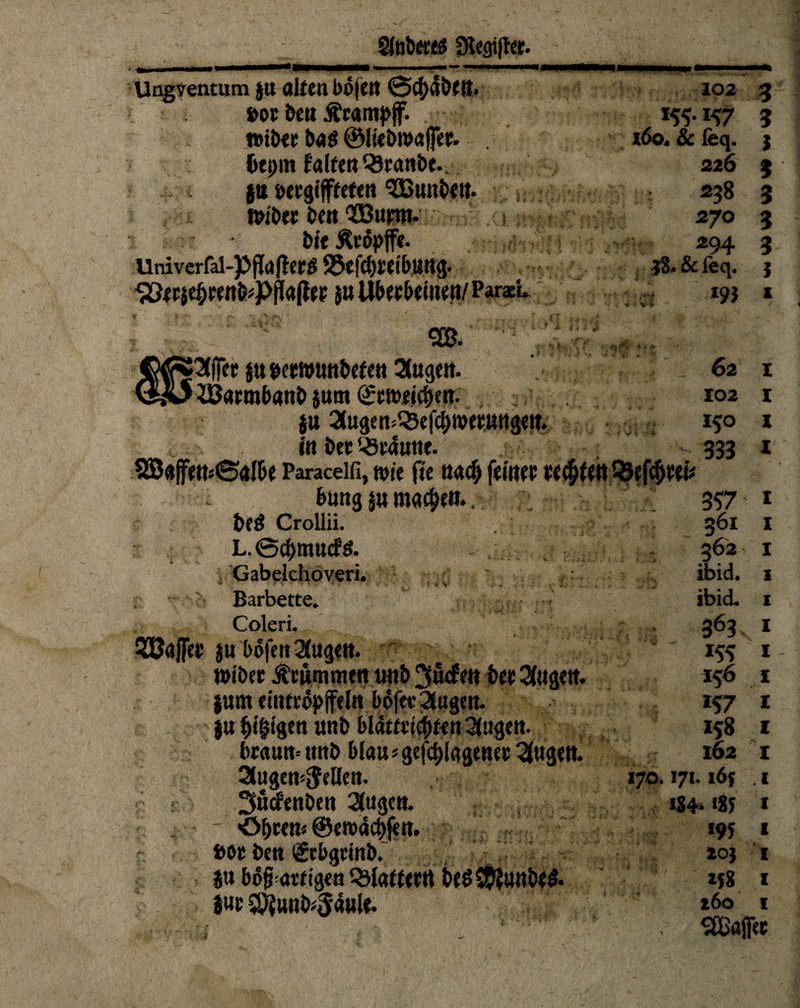 Anderes Register.
Ungventum zu alten bösen Schäden. 102 3
vor den Krampff. 155. 157 3
wider das Gliedwasser. 160. & seq. 3
beym kalten Brande. 226 3
zu vergiffteten Wunden. 238 3
wider den Wurm. 270 3
die Kröpffe. 294 3
Universal-Pflasters Beschreibung. 38. & seq. 3
Verzehrend-Pflaster zu Überbeinen/ Paræi. 193 1
W.
Wasser zu verwundeten Augen. 62 1
Warmband zum Erweichen. 102 1
zu Augen-Beschwerungen. 150 1
in der Bräune. 333 1
Waffen-Salbe Paracelsi, wie sie nach seiner rechten Beschrei-
bung zu machen. 357 1
des Crollii. 361 1
L. Schmucks. 362 1
Gabelchoveri. ibid. 1
Barbette. ibid. 1
Coleri. 363 1
Wasser zu bösen Augen. 155 1
wider Krümmen und Jücken der Augen. 156 1
zum eintröpffeln böser Augen. 157 1
zu hitzigen und blattrichten Augen. 158 1
braun- und blau-geschlagener Augen. 162 1
Augen-Fellen. 170. 171. 165 1
Jückenden Augen. 184. 185 1
Ohren-Gewächsen. 195 1
vor den Erbgrind. 203 1
zu böß-artigen Blattern des Mundes. 258 1
zur Mund-Fäule. 260 1
Wasser